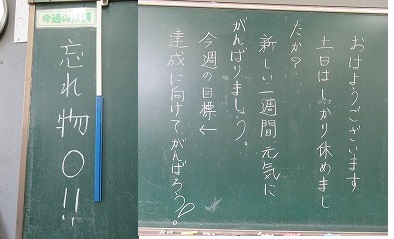 おはようございます
土日はしっかり休めまし
たか？
新しい一週間元気に
がんばりましょう。
今週の目標←
達成に向けてがんばろう
今週の
忘れ物０!!